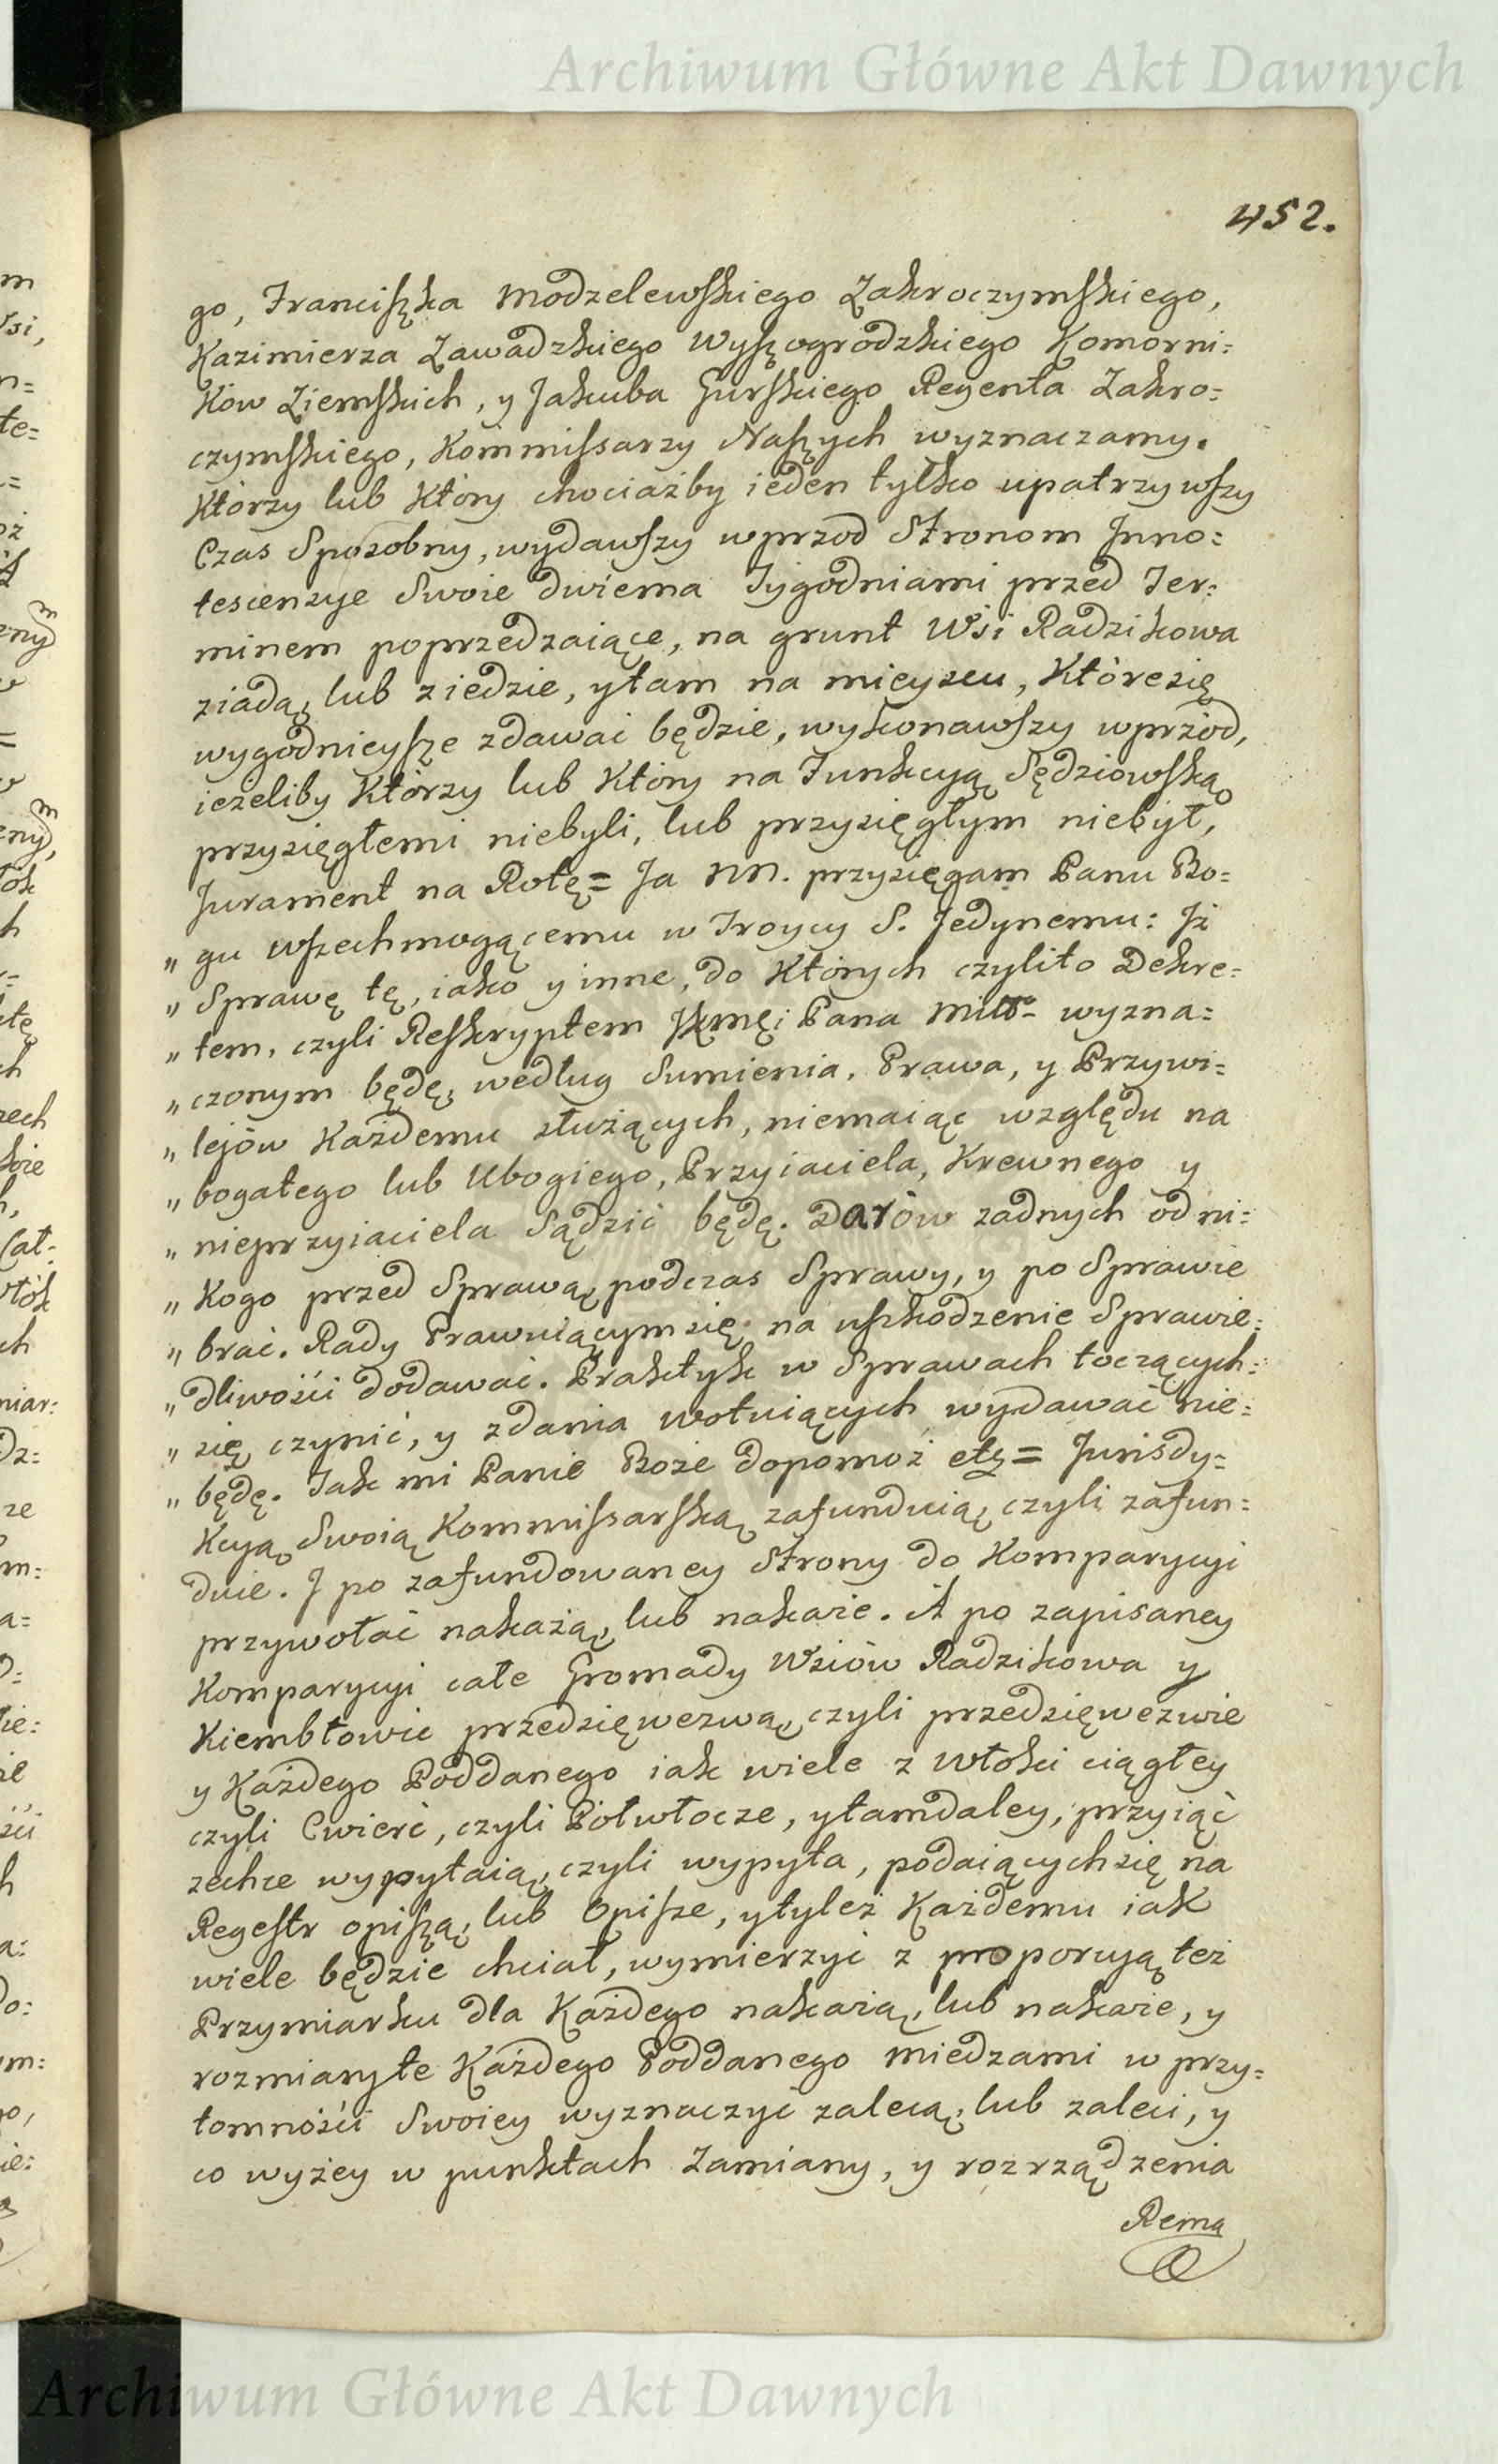 Archiwum Główne Akt Dawnych
452.
go, Franciszka Modzelewskiego Zakroczymskiego,
Kazimierza Zawadzkiego Wyszogrodzkiego Komorni=
ków Ziemskich, y Jakuba Gurskiego Regenta Zakro=
czymskiego, Kommissarzy Naszych wyznaczamy.
Którzy lub Który chociażby ieden tylko upatrzywszy
Czas Sposobny, wydawszy wprzod Stronom Inno=
tescencye Swoie dwiema Tygodniami przed Ter=
minem poprzedzaiące, na grunt Wsi Radzikowa
ziadą, lub ziedzie, y tam na mieyscu, Które się
wygodnieysze zdawać będzie, wykonawszy wprzód,
ieżeliby Którzy lub Który na Funkcyą Sędziowską
przysięgłemi niebyli, lub przysięgłym niebył,
Jurament na Rotę= Ja NN. przysięgam Panu Bo=
„ gu Wszechmogącemu w Troycy S. Jedynemu: Jż
„ Sprawę tę, iako y inne, do Których czylito Dekre=
„ tem, czyli Reskryptem Pana wyzna=
„ czonym będę, według Sumienia, Prawa, y Przywi=
„ lejów Każdemu służących, niemaiąc względu na
„ bogatego lub Ubogiego, Przyiaciela, Krewnego y
„ nieprzyiaciela Sądzić będę. Darów żadnych od ni=
„ Kogo przed Sprawą, podczas Sprawy, y po Sprawie
„ brać. Rady Prawuiącym się na uszkodzenie Sprawie=
„ dliwości dodawać. Praktyk w Sprawach toczących=
„ się czynić, y zdania wotuiących wydawać nie=
„ będę. Tak mi Panie Boże dopomoż etc= Jurisdy=
Kcyą Swoią Kommissarską zafunduią, czyli zafun=
duie. J po zafundowaney Strony do Komparycyi
przywołać nakażą, lub nakaże. A po zapisaney
Komparycyi całe Gromady Wsiów Radzikowa y
Kiembłowic przedsięwezwą, czyli przedsięwezwie
y Każdego Poddanego iak wiele z Włoki ciągłey
czyli Cwierć, czyli Półwłocze, y tamdaley, przyiąć
zechce wypytaią, czyli wypyta, podaiących się na
Regestr opiszą, lub Opisze, y tyleż Każdemu iak
wiele będzie chciał, wymierzyć z proporcyą też
Przymiarku dla Każdego nakażą, lub nakaże, y
rozmiary te Każdego Poddanego Miedzami w przy=
tomności Swoiey wyznaczyć zalecą, lub zaleci, y
co wyżey w punktach Zamiany, y rozrządzenia
Rema
Archiwum Główne Akt Dawnych